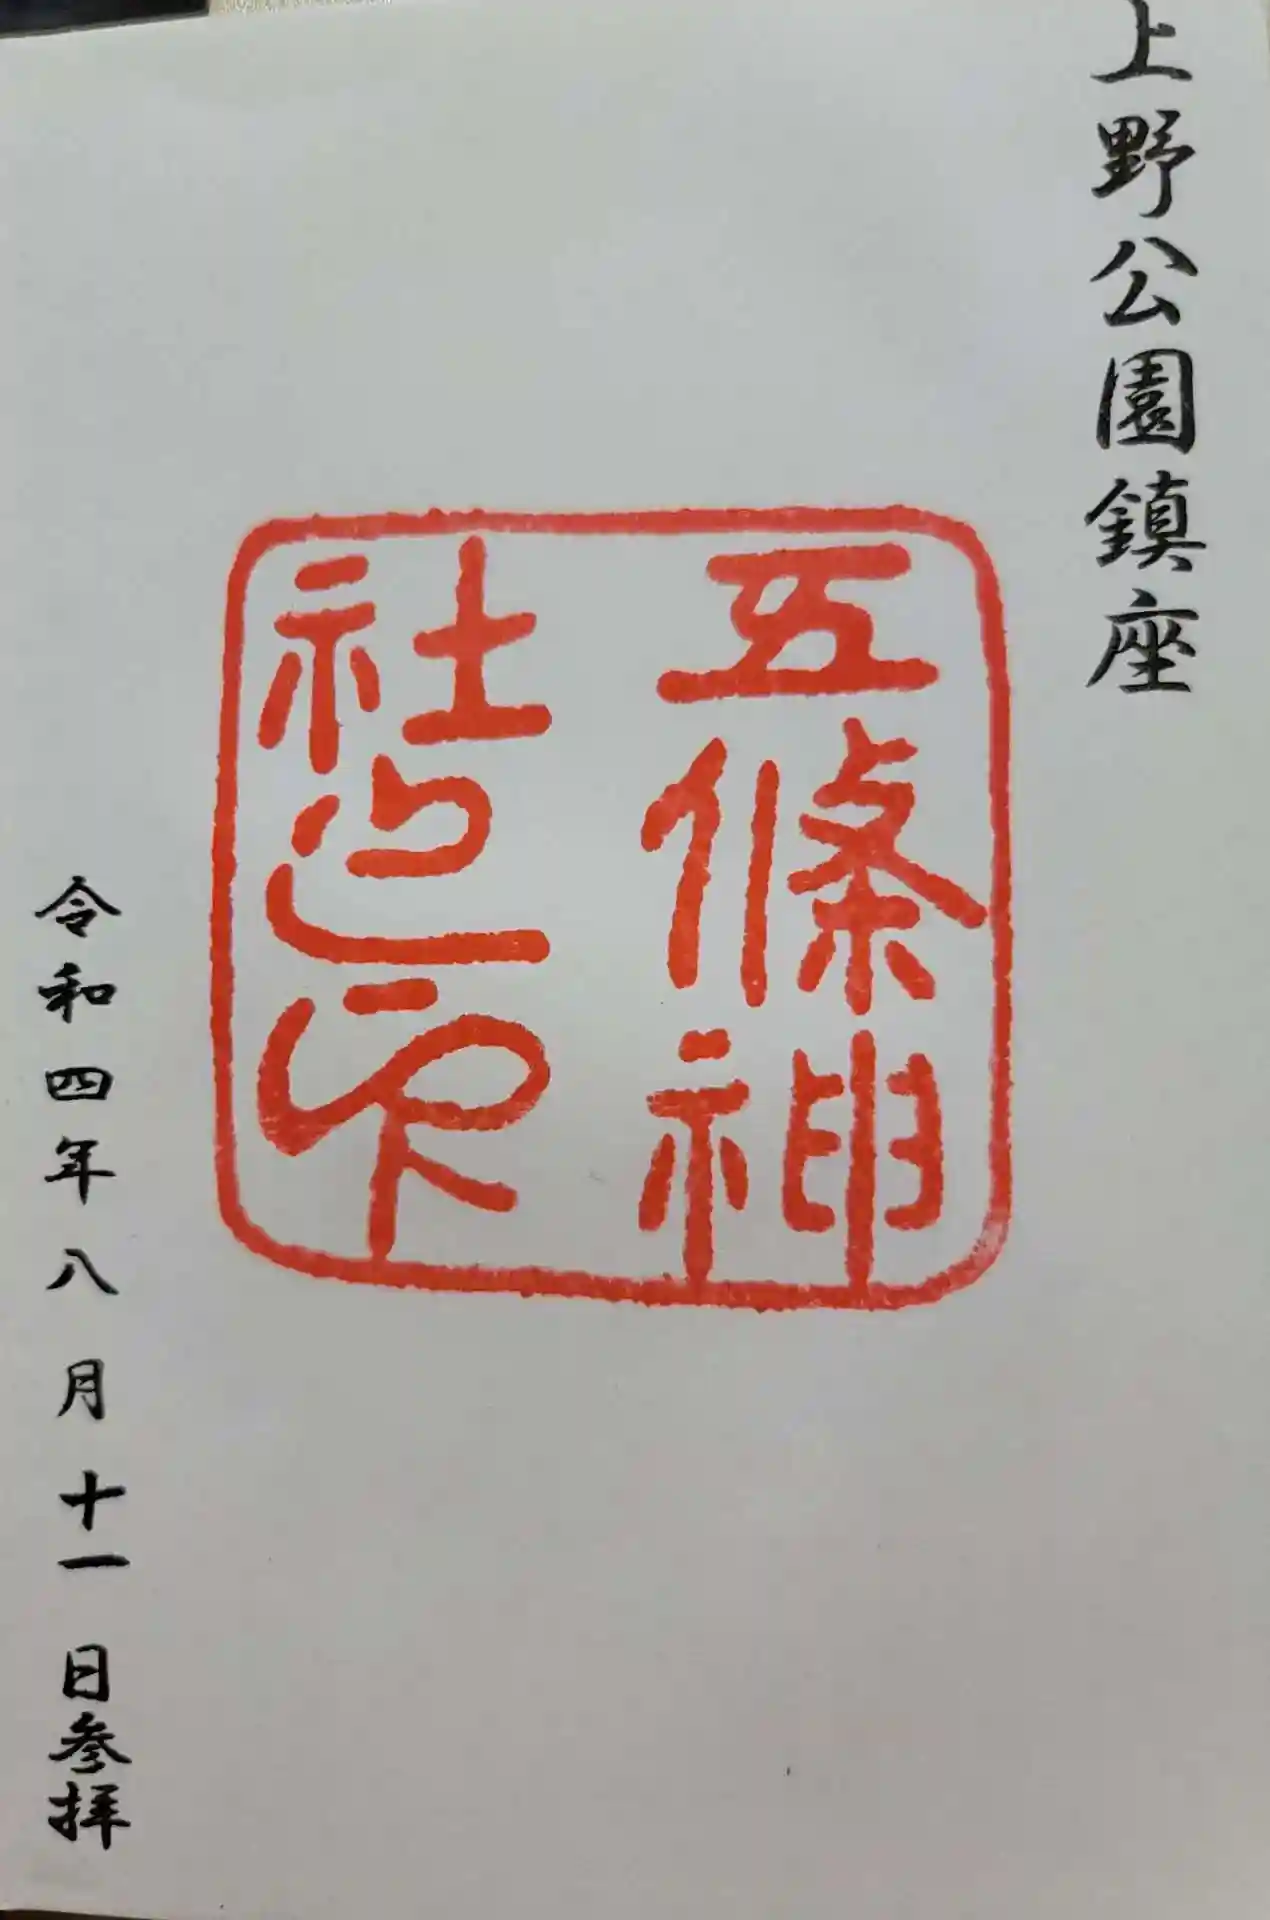 上野公園鎮座
五條神
社之印
令和四年八月十一日参拝